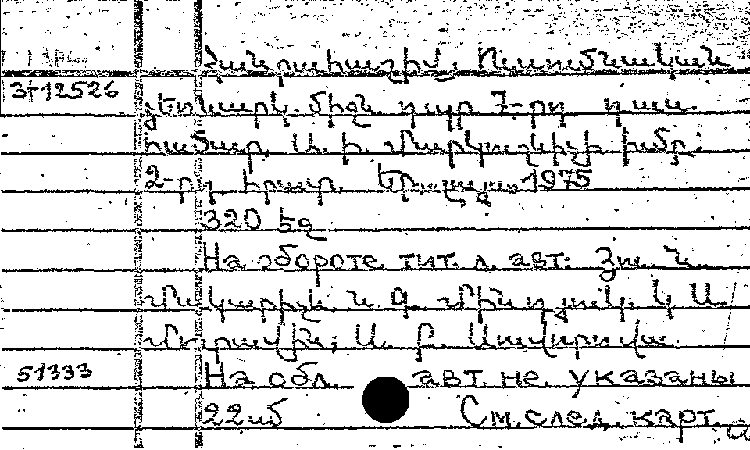 Հանրահաշիվ: Ուսումնական
3+12526
ձեռնարկ միջն. դպր 7-րդ դաս.
համար. Ա. ի. Մարկուշևիչի խմբ.
2-րդ հրատ. Եր. 1975
320 էջ
На обороте тит. л. авт: Յու. Ն.
Մակարիչև Ն. Գ. Մինդյուկ, Կ Ս.
Մուրավին; Ս. Բ. Սուվորովա.
51333
На обл. авт. не указаны
22սմ См. след. карт.